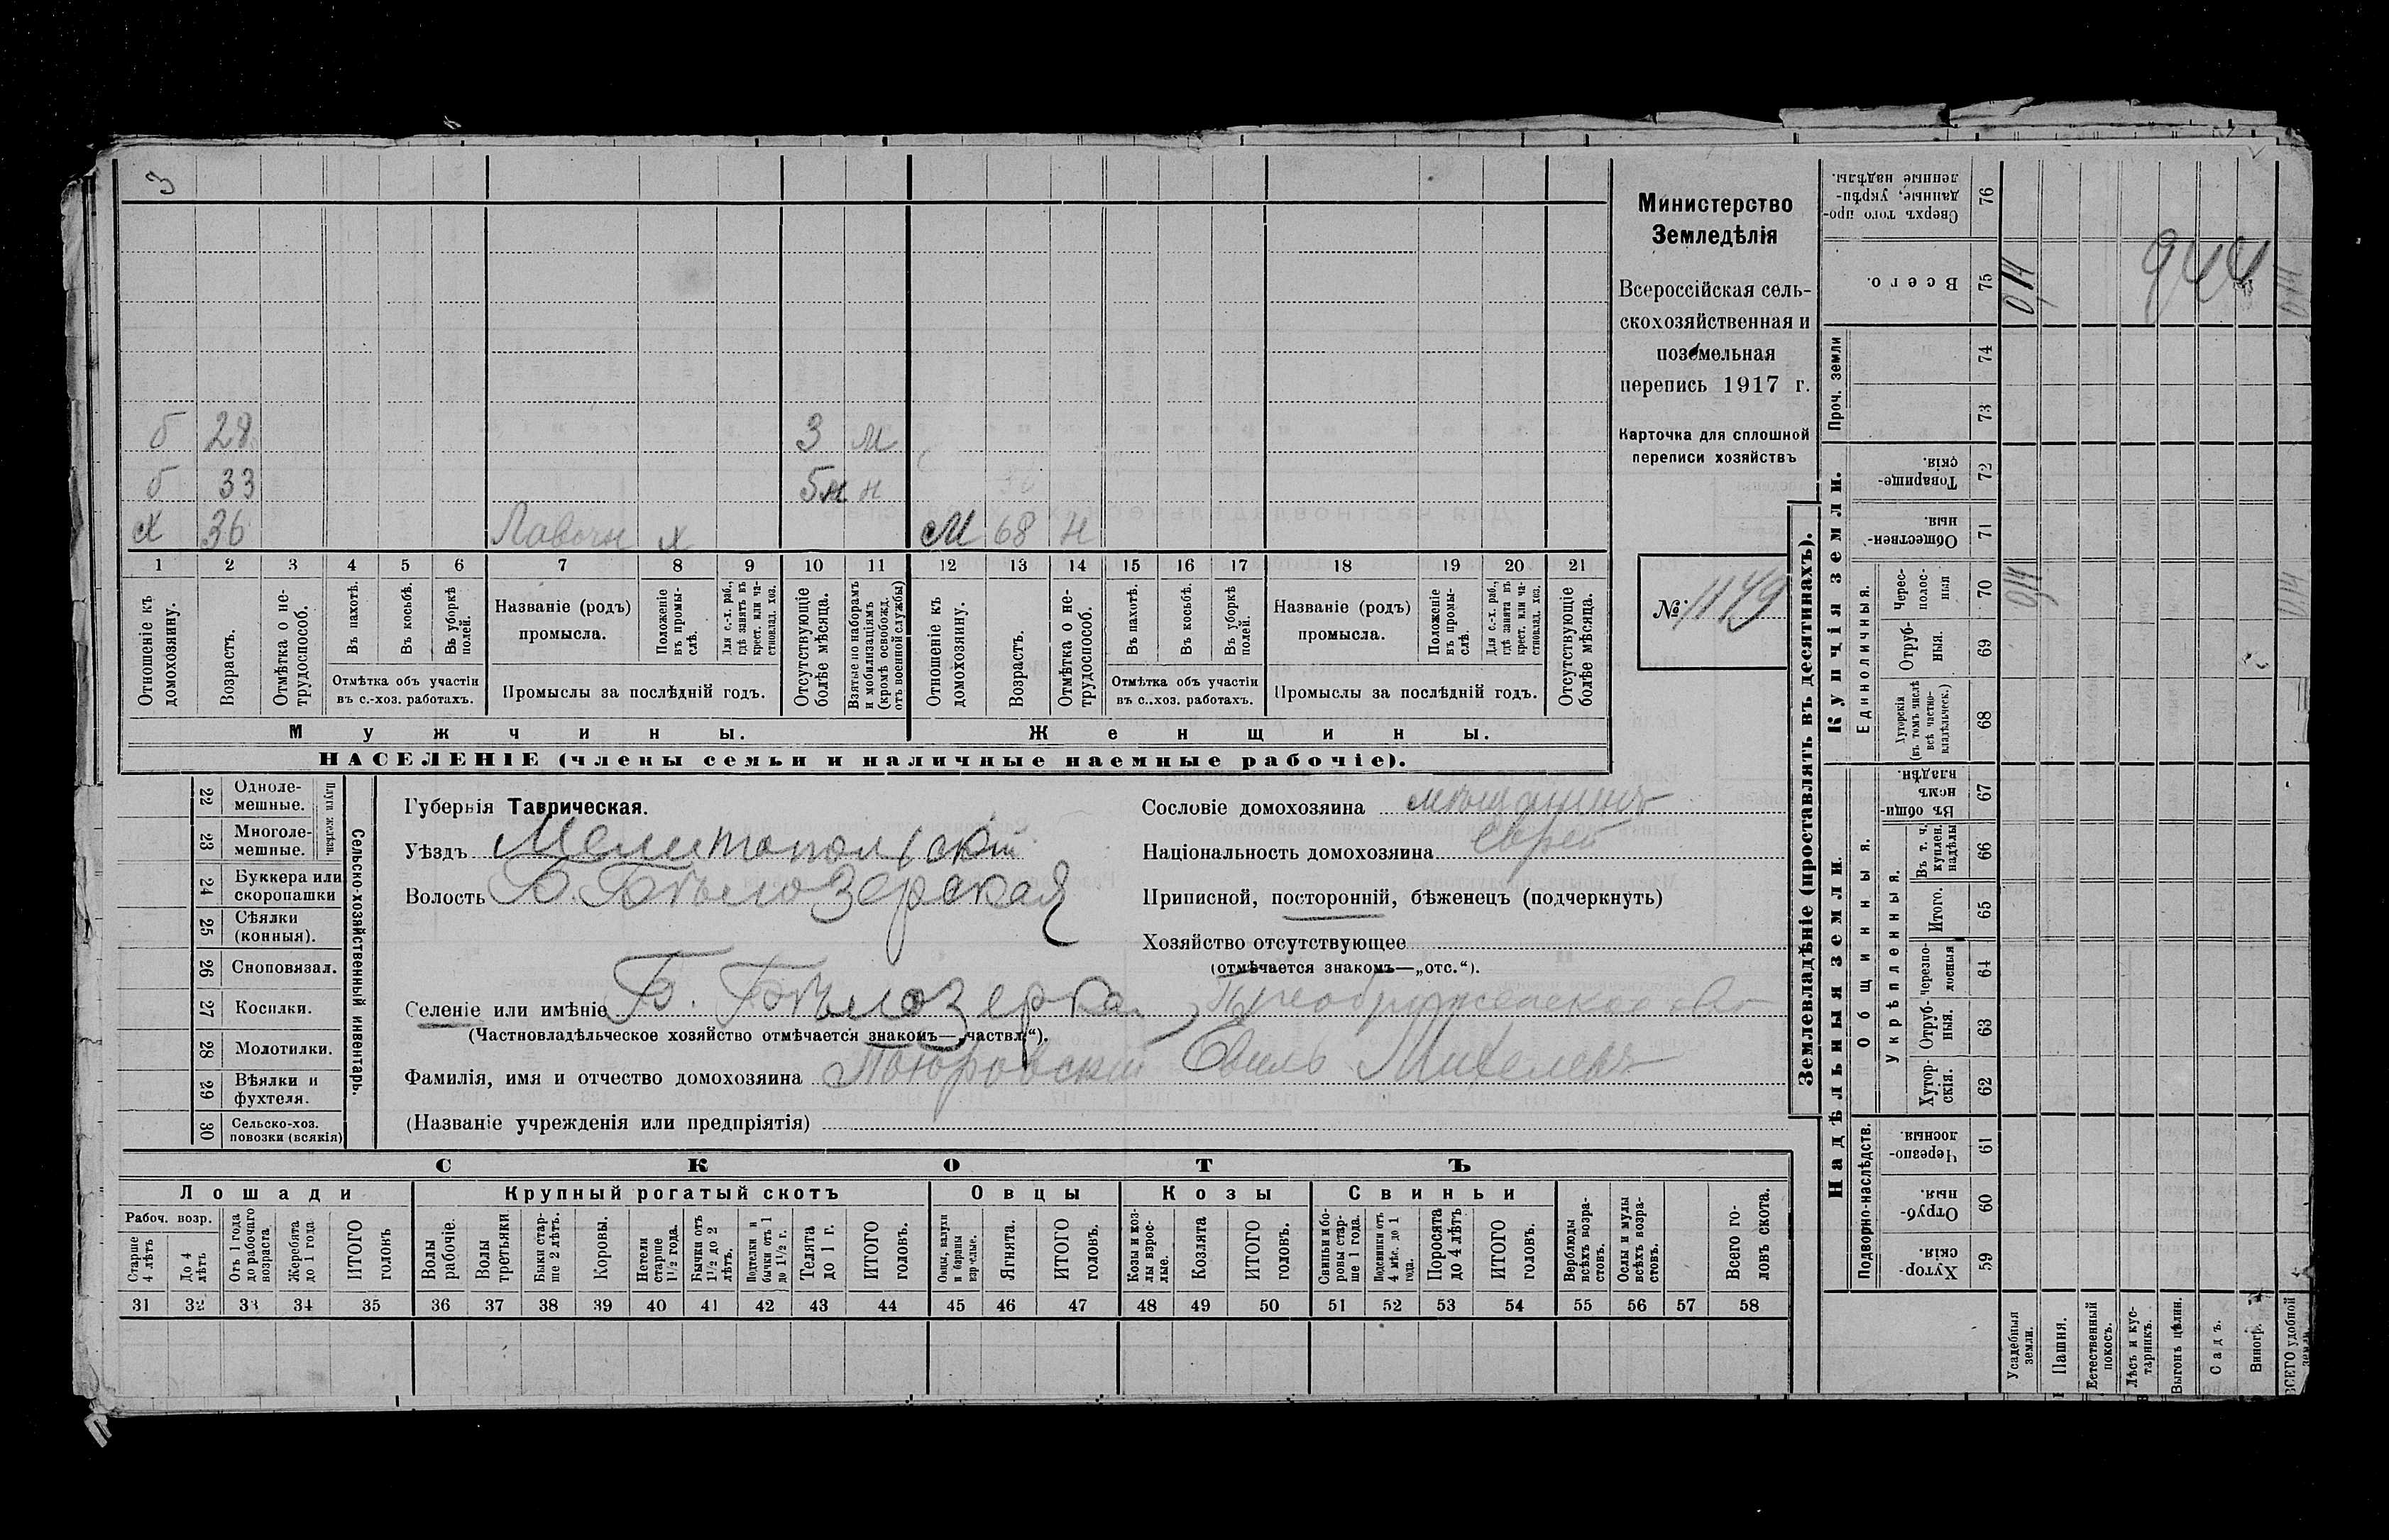 3
б 28 3 м
б 33 5м н
х 36 Лавочн х м 68 н
1 2 3 4 5 6 7 8 9 10 11 12 13 14 15 16 17 18 19 20 21
Отношеніе къ домохозяину.
Возрастъ.
Отмѣтка о не-трудоспособ.
Въ пахотѣ.
Въ косьбѣ.
Въ уборкѣ полей.
Отмѣтка объ участіи
въ с.-хоз. работахъ.
Названіе (родъ)
промысла.
Положеніе въ промы-слѣ.
Для с.-х. раб., гдѣ занятъ въ крест. или ча-стновлад. хоз.
Промыслы за послѣдній годъ.
Отсутствующіе болѣе мѣсяца.
Взятые по наборамъ и мобилизаціямъ (кромѣ освобожд. отъ военной службы)
Отношеніе къ домохозяину.
Возрастъ.
Отмѣтка о не-трудоспособ.
Въ пахотѣ.
Въ косьбѣ.
Въ уборкѣ полей.
Отмѣтка объ участіи
въ с.-хоз. работахъ.
Названіе (родъ)
промысла.
Положеніе въ промы-слѣ.
Для с.-х. раб., гдѣ занята въ крест. или ча-стновлад. хоз.
Промыслы за послѣдній годъ.
Отсутствующіе болѣе мѣсяца.
Мужчины. Женщины.
НАСЕЛЕНІЕ (члены семьи и наличные наемные рабочіе).
Министерство
Земледѣлія
Всероссійская сель-
скохозяйственная и
поземельная
перепись 1917 г.
Карточка для сплошной
переписи хозяйствъ
№ 1149
22 Одноле-мешные.
23 Многоле-мешные.
Плуги желѣзн.
24 Буккера или скоропашки
25 Сѣялки (конныя).
26 Сноповязал.
27 Косилки.
28 Молотилки.
29 Вѣялки и фухтеля.
30 Сельско-хоз. повозки (всякія)
Сельско-хозяйственный инвентарь.
Губернія Таврическая.
Уѣздъ Мелитопольскій
Волость Б. Бѣлозерская
Селеніе или имѣніе Б. Бѣлозерка,
(Частновладѣльческое хозяйство отмѣчается знакомъ—„частвл.“).
Фамилія, имя и отчество домохозяина
(Названіе учрежденія или предпріятія)
Сословіе домохозяина мѣщанинъ
Національность домохозяина еврей
Приписной, посторонній, бѣженецъ (подчеркнуть)
Хозяйство отсутствующее
(отмѣчается знакомъ—„отс.“).
СКОТЪ
Лошади
Крупный рогатый скотъ
Овцы
Козы
Свиньи
Рабоч. возр.
Старше 4 лѣтъ
До 4 лѣтъ
Отъ 1 года до рабочаго возраста
Жеребята до 1 года
ИТОГО головъ
Волы рабочіе.
Волы третьяки
Быки стар-ше 2 лѣтъ.
Коровы.
Нетели старше 1 1/2 года.
Бычки отъ 1 1/2 до 2 лѣтъ.
Подтелки и бычки отъ 1 до 1 1/2 г.
Телята до 1 г.
ИТОГО головъ.
Овцы, валухи и бараны взрослые.
Ягнята.
ИТОГО головъ.
Козы и коз-лы взрос-лые.
Козлята
ИТОГО головъ.
Свиньи и бо-ровы стар-ше 1 года.
Подсвинки отъ 4 мѣс. до 1 года.
Поросята до 4 лѣтъ
ИТОГО головъ.
Верблюды всѣхъ возра-стовъ.
Ослы и мулы всѣхъ возра-стовъ.
Всего го-ловъ скота.
31 32 33 34 35 36 37 38 39 40 41 42 43 44 45 46 47 48 49 50 51 52 53 54 55 56 57 58
Землевладѣніе (проставлять въ десятинахъ).
Надѣльныя земли.
Купчія земли.
Проч. земли
Подворно-наслѣдств.
Общинныя.
Укрѣпленныя.
Единоличныя.
Сверхъ того про-данные, укрѣп-ленные надѣлы. 76
Всего. 75 0,14
74
73
Товарище-скія. 72
Обществен-ныя. 71
Черес-полос-ныя 70 0,14
Отруб-ныя. 69
Хуторскія (въ томъ числѣ всѣ частно-владѣльческ.) 68
Въ общин-номъ владѣн. 67
Въ т. ч. куплен. надѣлы 66
Итого. 65
Черезпо-лосныя 64
Отруб-ныя. 63
Хутор-скія. 62
Черезпо-лосныя. 61
Отруб-ныя. 60
Хутор-скія. 59
944
Усадебныя земли.
Пашня.
Естественный покосъ.
Лѣсъ и кус-тарникъ.
Выгонъ цѣлин.
Садъ.
Виногр.
ВСЕГО удобной земли.